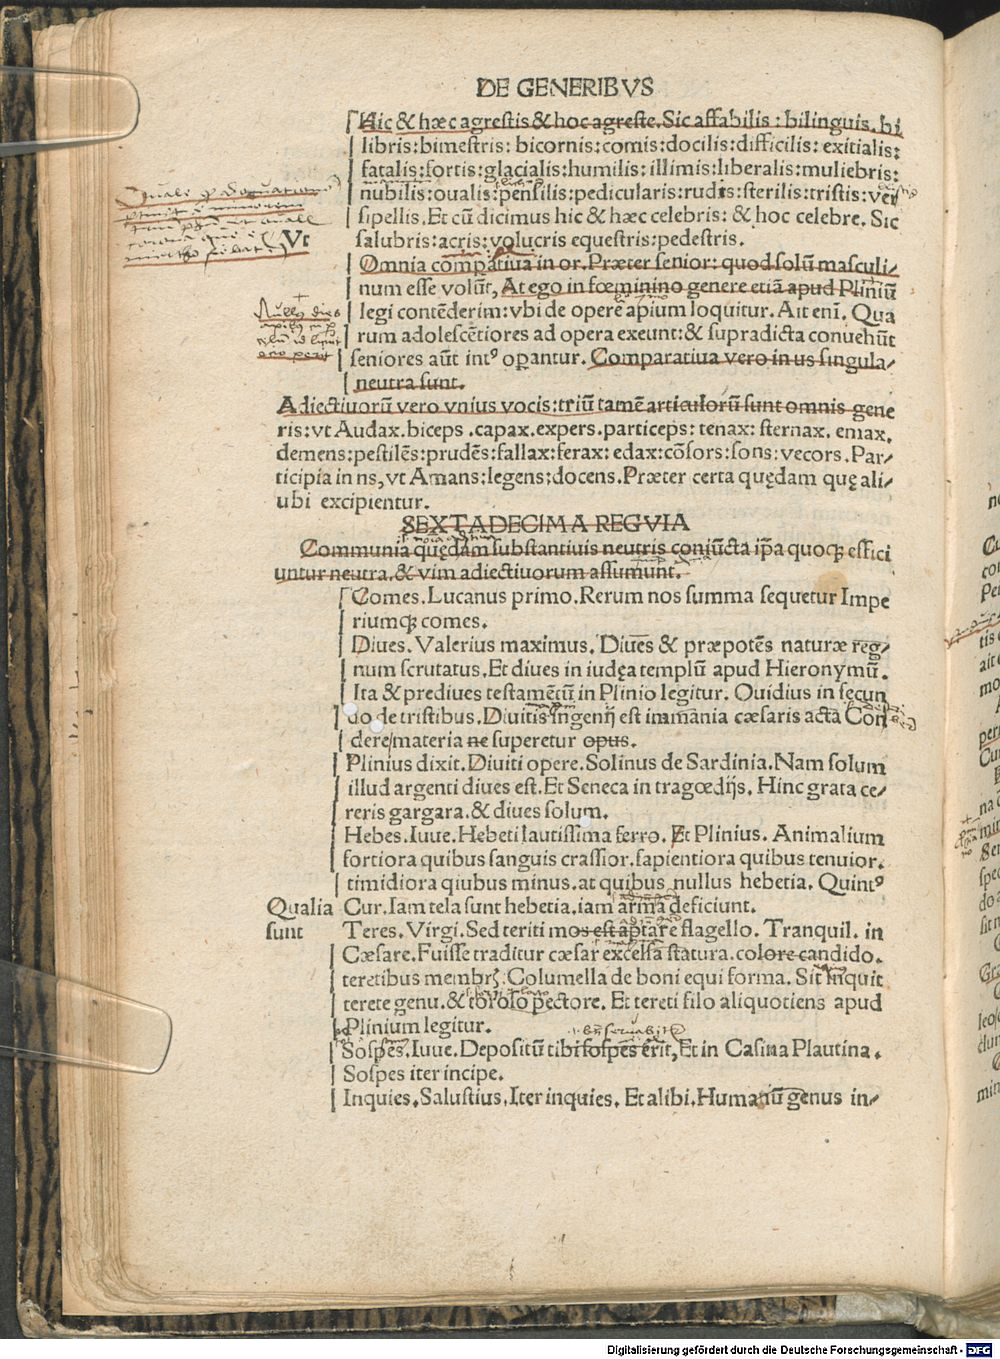 DE GENERIBVS
Hic & hæc agrestis & hoc agreste. Sic affabilis : bilinguis. bi
libris: bimestris: bicornis: comis: docilis: difficilis: exitialis:
fatalis: fortis: glacialis: humilis: illimis: liberalis: muliebris:
nubilis: oualis: pensilis: pedicularis: rudis: sterilis: tristis: ver
sipellis. Et cū dicimus hic & hæc celebris: & hoc celebre. Sic
Vt salubris: acris: volucris equestris: pedestris.
Omnia compatiua in or. Præter senior: quod solū masculi⸗
num esse volūt, At ego in fœminino genere etiā apud Pliniū
legi contēderim: vbi de opere apium loquitur. Ait enī. Qua
rum adolescētiores ad opera exeunt: & supradicta conuehūt
seniores aūt intꝰ oꝑantur. Comparatiua vero in us singula⸗
neutra sunt.
Adiectiuorū vero vnius vocis: triū tamē articulorū sunt omnis gene
ris: vt Audax. biceps . capax. expers. particeps: tenax: sternax. emax.
demens: pestilēs: prudēs: fallax: ferax: edax: cōsors: sons: vecors. Par⸗
ticipia in ns, vt Amans: legens: docens. Præter certa quędam quę ali⸗
ubi excipientur.
SEXTADECIMA REGVIA
Communia quędam substantiuis neutris coniūcta ip̄a quoqꝫ effici
untur neutra. & vim adiectiuorum assumunt.
Comes. Lucanus primo. Rerum nos summa sequetur Impe
riumqꝫ comes.
Diues. Valerius maximus. Diues & præpotēs naturæ reg⸗
num scrutatus. Et diues in iudęa templū apud Hieronymū.
Ita & prediues testamētū in Plinio legitur. Ouidius in secun
do de tristibus. Diuitis ingenij est immania cæsaris acta Con
dere/materia ne superetur opus.
Plinius dixit. Diuiti opere. Solinus de Sardinia. Nam solum
illud argenti diues est. Et Seneca in tragœdijs. Hinc grata ce⸗
reris gargara. & diues solum.
Hebes. Iuue. Hebeti lautissima ferro. Et Plinius. Animalium
fortiora quibus sanguis crassior. sapientiora quibus tenuior.
timidiora qiubus minus. at quibus nullus hebetia. Quintꝰ
Qualia Cur. Iam tela sunt hebetia. iam arma deficiunt.
sunt Teres. Virgi. Sed teriti mos est aptare flagello. Tranquil. in
Cæsare. Fuisse traditur cæsar excelsa statura. colore candido.
teretibus membrꝭ. Columella de boni equi forma. Sit inquit
terete genu. & toroso pectore. Et tereti filo aliquotiens apud
Plinium legitur.
Sospes. Iuue. Depositū tibi sospes erit, Et in Casina Plautina.
Sospes iter incipe.
Inquies. Salustius. Iter inquies. Et alibi. Humanū genus in⸗
Digitalisierung gefördert durch die Deutsche Forschungsgemeinschaft - DFG